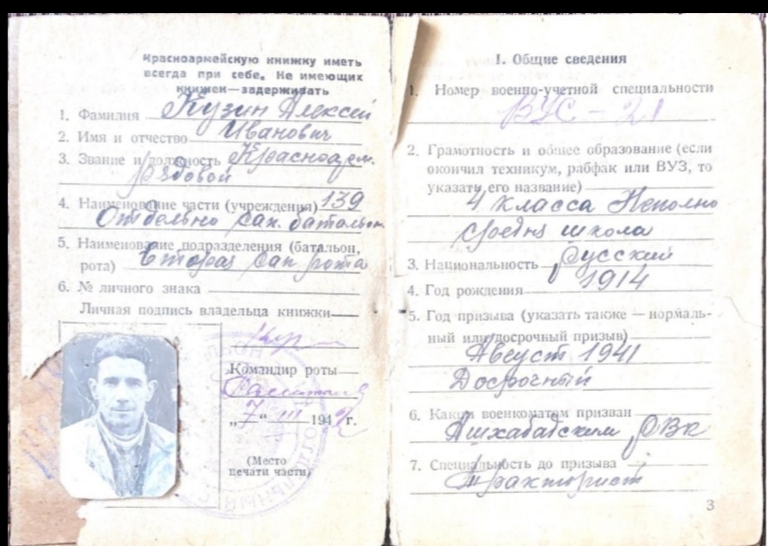 Красноармейскую книжку иметь
всегда при себе. Не имеющих
книжек — задерживать
1. Фамилия Кузин Алексей
2. Имя и отчество Иванович
3. Звание и должность Красноарм.
Рядовой
4. Наименование части (учреждения) 139
Отдельно сан. батальон
5. Наименование подразделения (батальон,
рота) Вторая Сан рота
6. № личного знака
Личная подпись владельца книжки
Командир роты
„7“ III 1942 г.
(Место
печати части)
I. Общие сведения
1. Номер военно-учетной специальности
ВУС – 21
2. Грамотность и общее образование (если
окончил техникум, рабфак или ВУЗ, то
указать его название)
4 класса Неполно
средня школа
3. Национальность русский
4. Год рождения 1914
5. Год призыва (указать также — нормаль-
ный или досрочный призыв)
Август 1941
Досрочный
6. Каким военкоматом призван
Ашхабадским РВК
7. Специальность до призыва
Тракторист
3